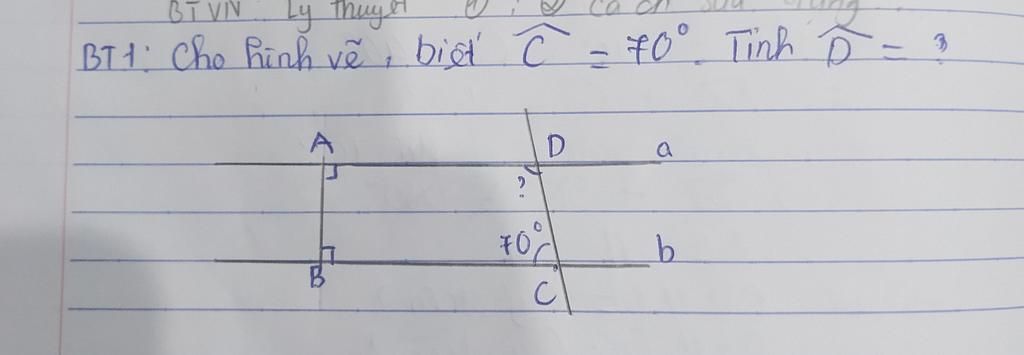 BTVN Lý thuyết
BT1: Cho hình vẽ, biết Ĉ = 70°. Tính D̂ = ?
A D a
?
70° b
B C